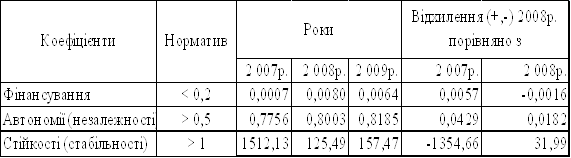 Коефіцієнти Норматив Роки Відхилення (+,-) 2008р. порівняно з
2 007р. 2 008р. 2 009р. 2 007р. 2 008р.
Фінансування < 0,2 0,0007 0,0080 0,0064 0,0057 -0,0016
Автономії (незалежності > 0,5 0,7756 0,8003 0,8185 0,0429 0,0182
Стійкості (стабільності) > 1 1512,13 125,49 157,47 -1354,66 31,99